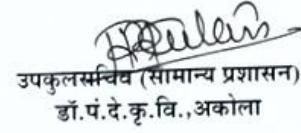 उपकुलसचिव (सामान्य प्रशासन)
डॉ.पं.दे.कृ.वि.,अकोला